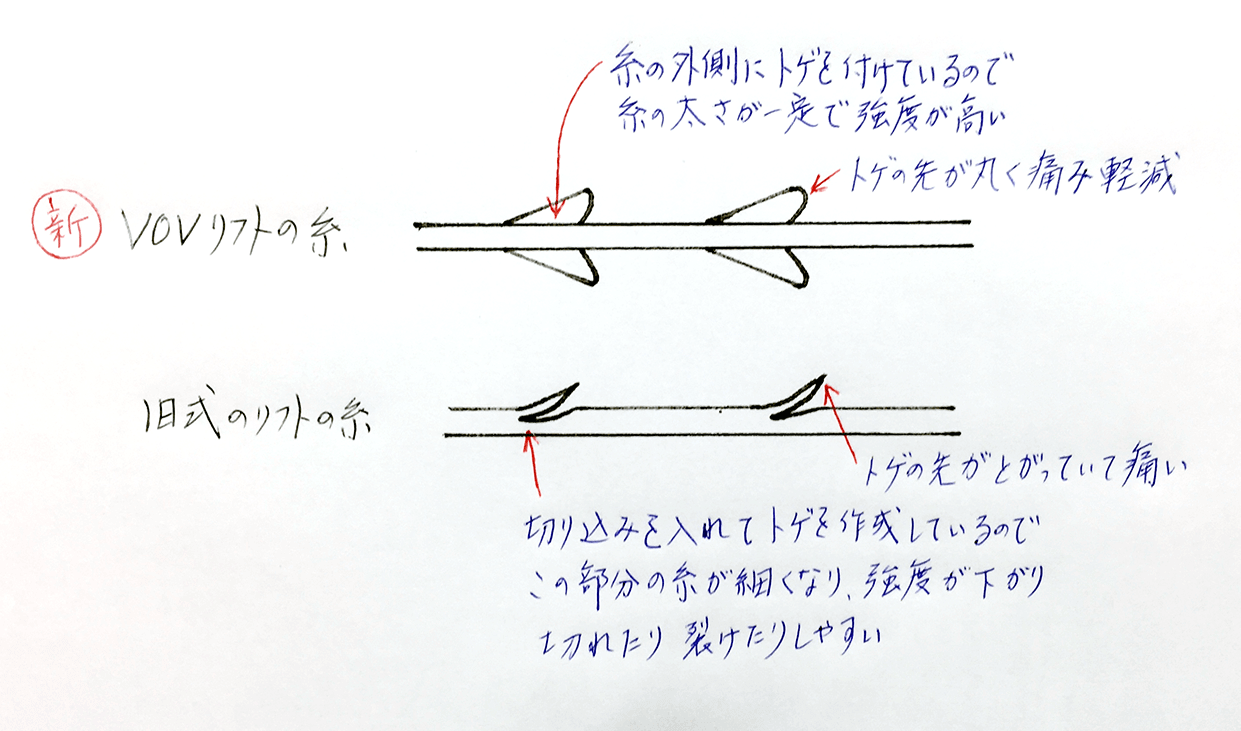 糸の外側にトゲを付けているので
糸の太さが一定で強度が高い
トゲの先が丸く痛み軽減
新 VOVリフトの糸
旧式のリフトの糸
トゲの先がとがっていて痛い
切り込みを入れてトゲを作成しているので
この部分の糸が細くなり、強度が下がり
切れたり裂けたりしやすい